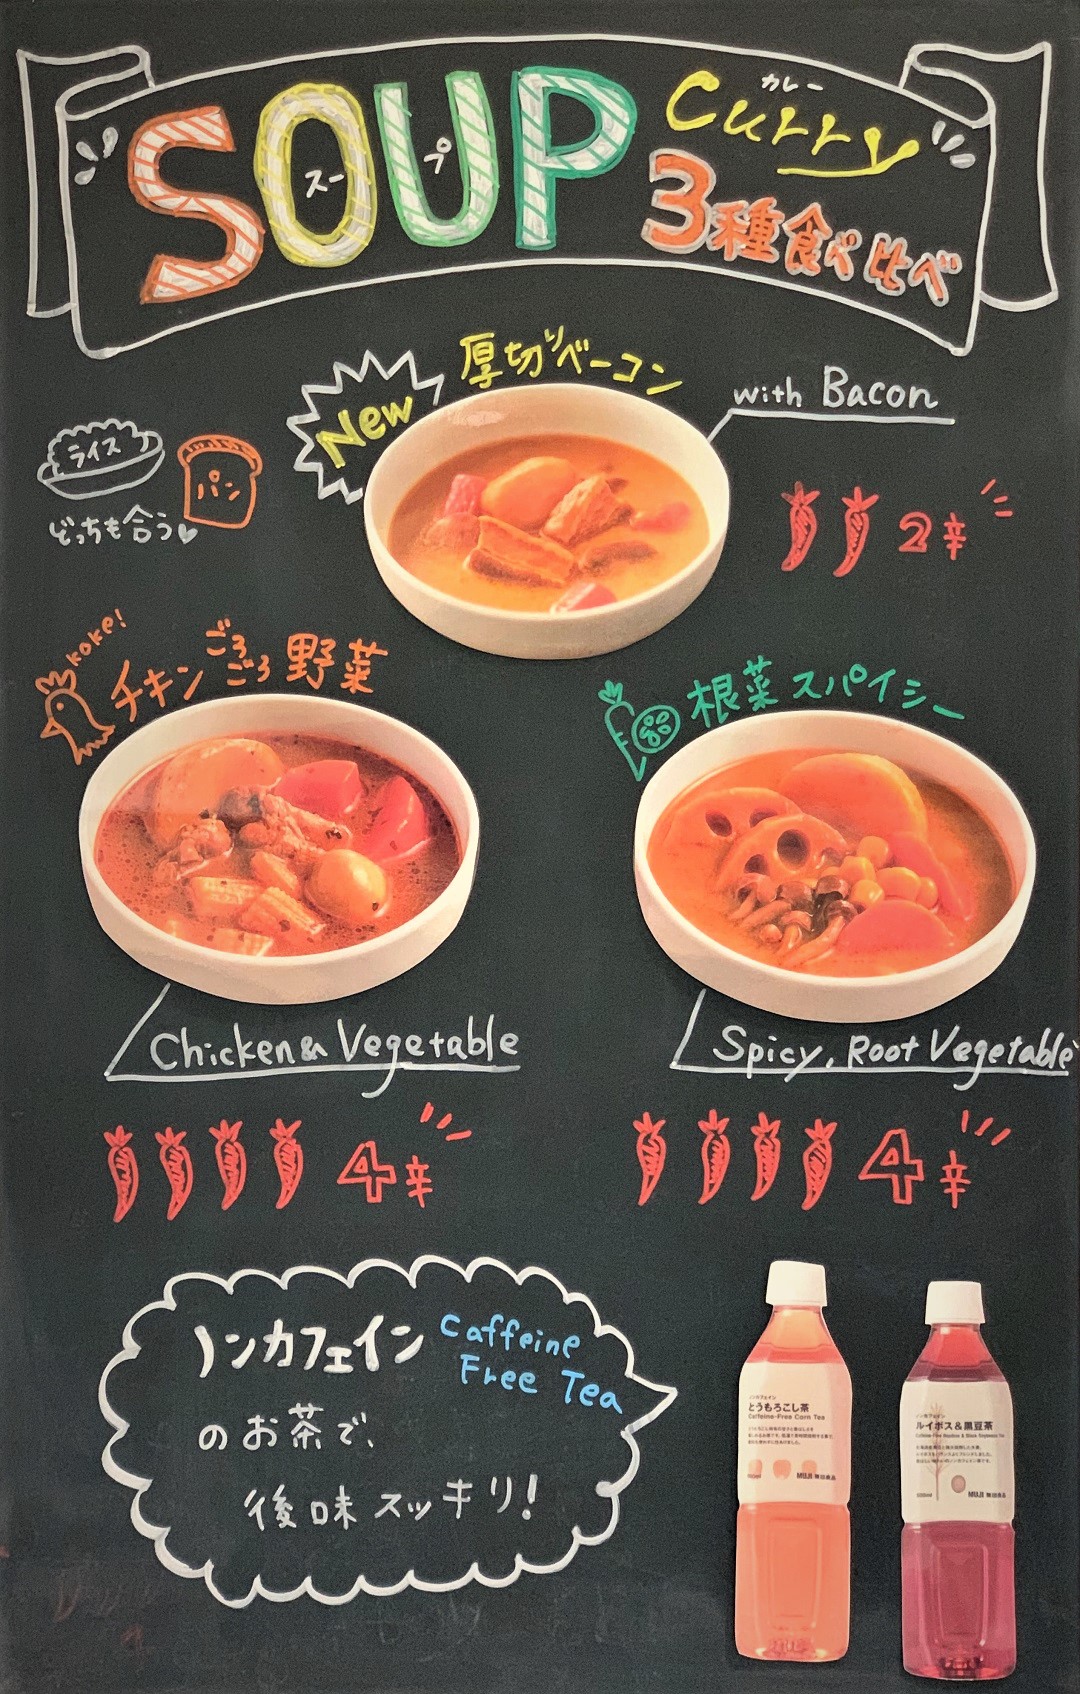 SOUP
スープ
カレー
Curry
3種食べ比べ
New
厚切りベーコン
with Bacon
ライス
パン
どっちも合う♥
2辛
koke!
チキンごろごろ野菜
根菜スパイシー
Chicken & Vegetable
Spicy, Root Vegetable
4辛
4辛
ノンカフェイン
Caffeine
Free Tea
のお茶で、
後味スッキリ!
ノンカフェイン
とうもろこし茶
Caffeine-Free Corn Tea
MUJI 無印良品
ノンカフェイン
ルイボス&黒豆茶
Caffeine-Free Rooibos & Black Soybeans Tea
MUJI 無印良品